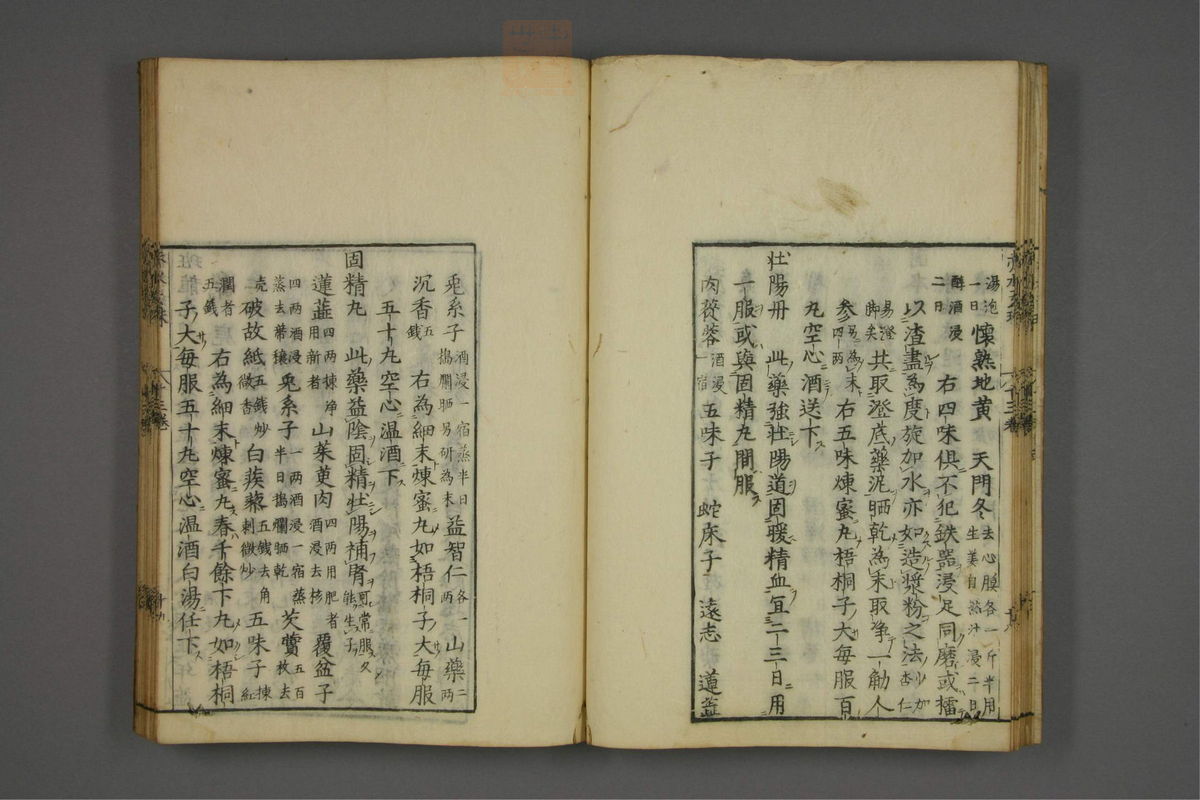 湯泡一日醇酒浸二日懷熟地黃　天門冬去心膜各一斤半用生姜自然汁浸二日
右四味俱不犯鉄器浸足同磨或擂
以渣盡為度旋加水亦如造漿粉之法杏仁加
易澄共取澄底藥泥晒乾為末取净一觔人
参四两另為末右五味煉蜜丸梧桐子大每服百
丸空心酒送下
壮陽丹　此藥強壮陽道固暖精血宜二三日用
一服或與固精丸間服
肉蓯蓉酒浸一宿五味子　蛇床子　遠志　蓮蕋
兎糸子酒浸一宿蒸半日搗爛晒另研為末益智仁各一两山藥二两
沉香五錢右為細末煉蜜丸如梧桐子大每服
五十丸空心温酒下
固精丸　此藥益陰固精壮陽補腎可常服久能生子
蓮蕋四两揀净用新者山茱萸肉四两用肥者酒浸去核覆盆子
四两酒浸蒸去蒂穰兎糸子一两酒浸一宿蒸半日搗爛晒乾芡實五百枚去
壳破故紙五錢炒微香白蒺藜五錢去角刺微炒五味子揀紅
潤者五錢右為細末煉蜜丸舂千餘下丸如梧桐
子大每服五十丸空心温酒白湯任下